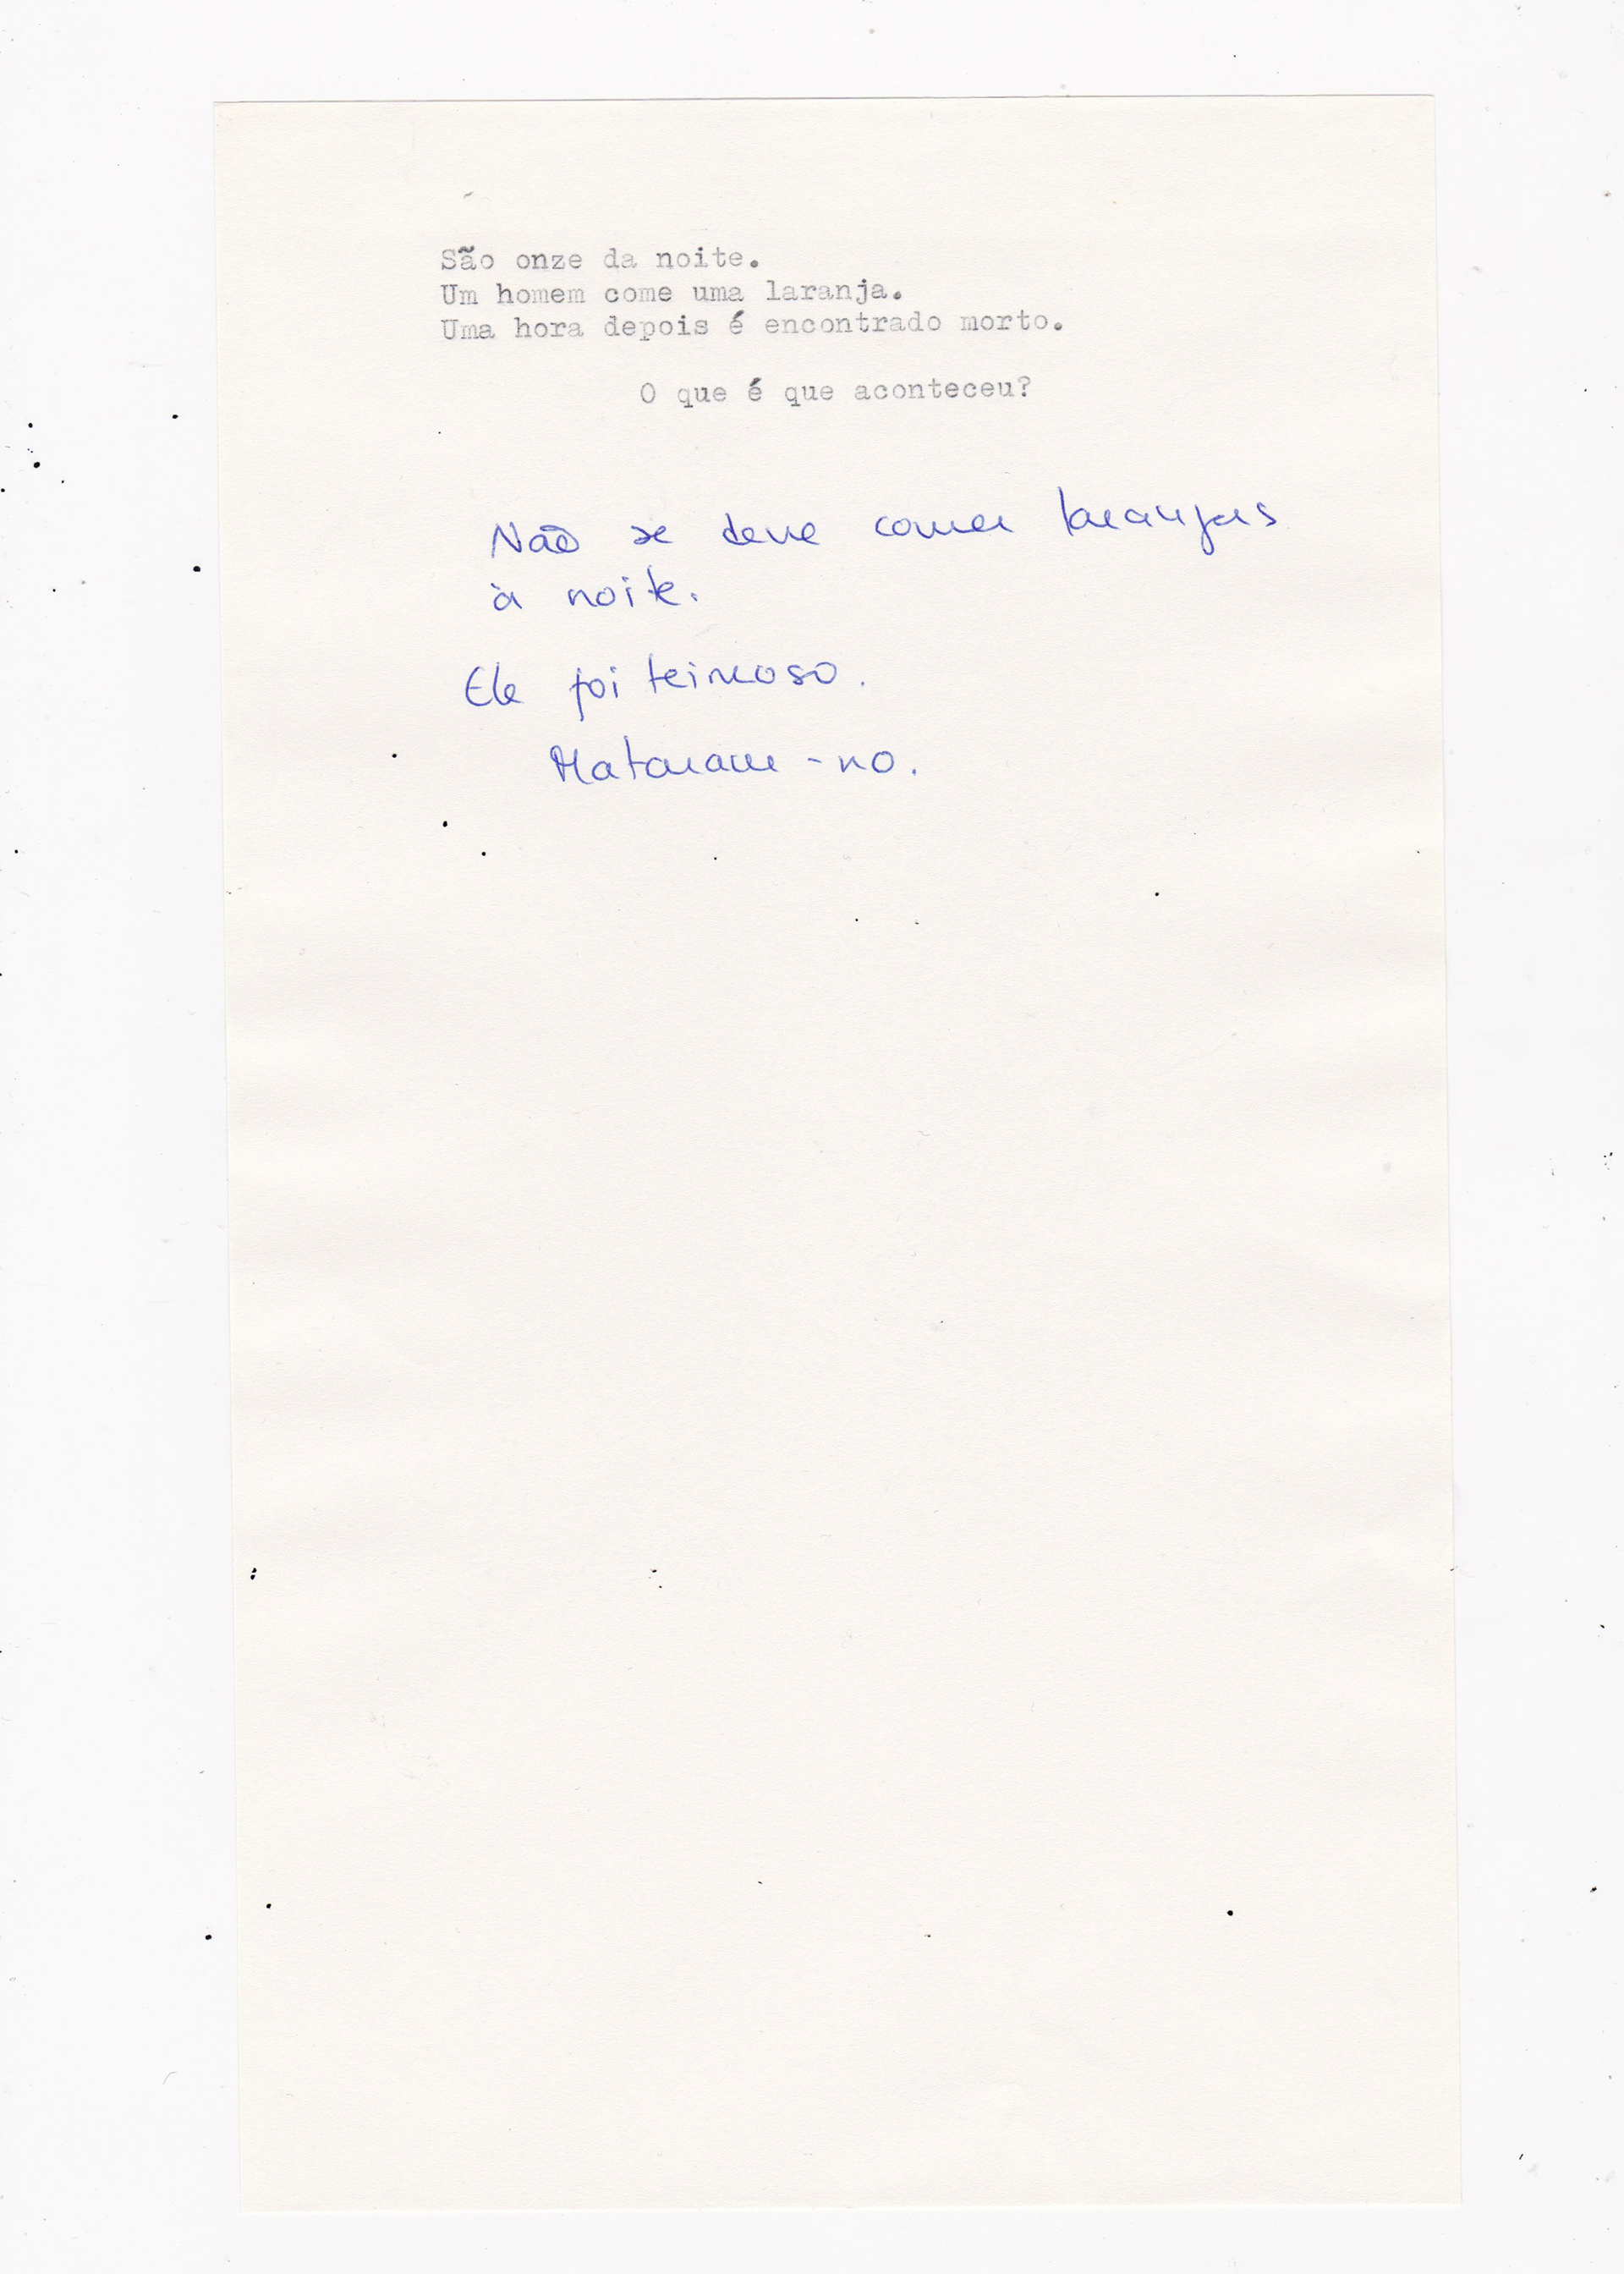 São onze da noite.
Um homem come uma laranja.
Uma hora depois é encontrado morto.
O que é que aconteceu?
Não se deve comer laranjas
à noite.
Ele foi teimoso.
Mataram-no.